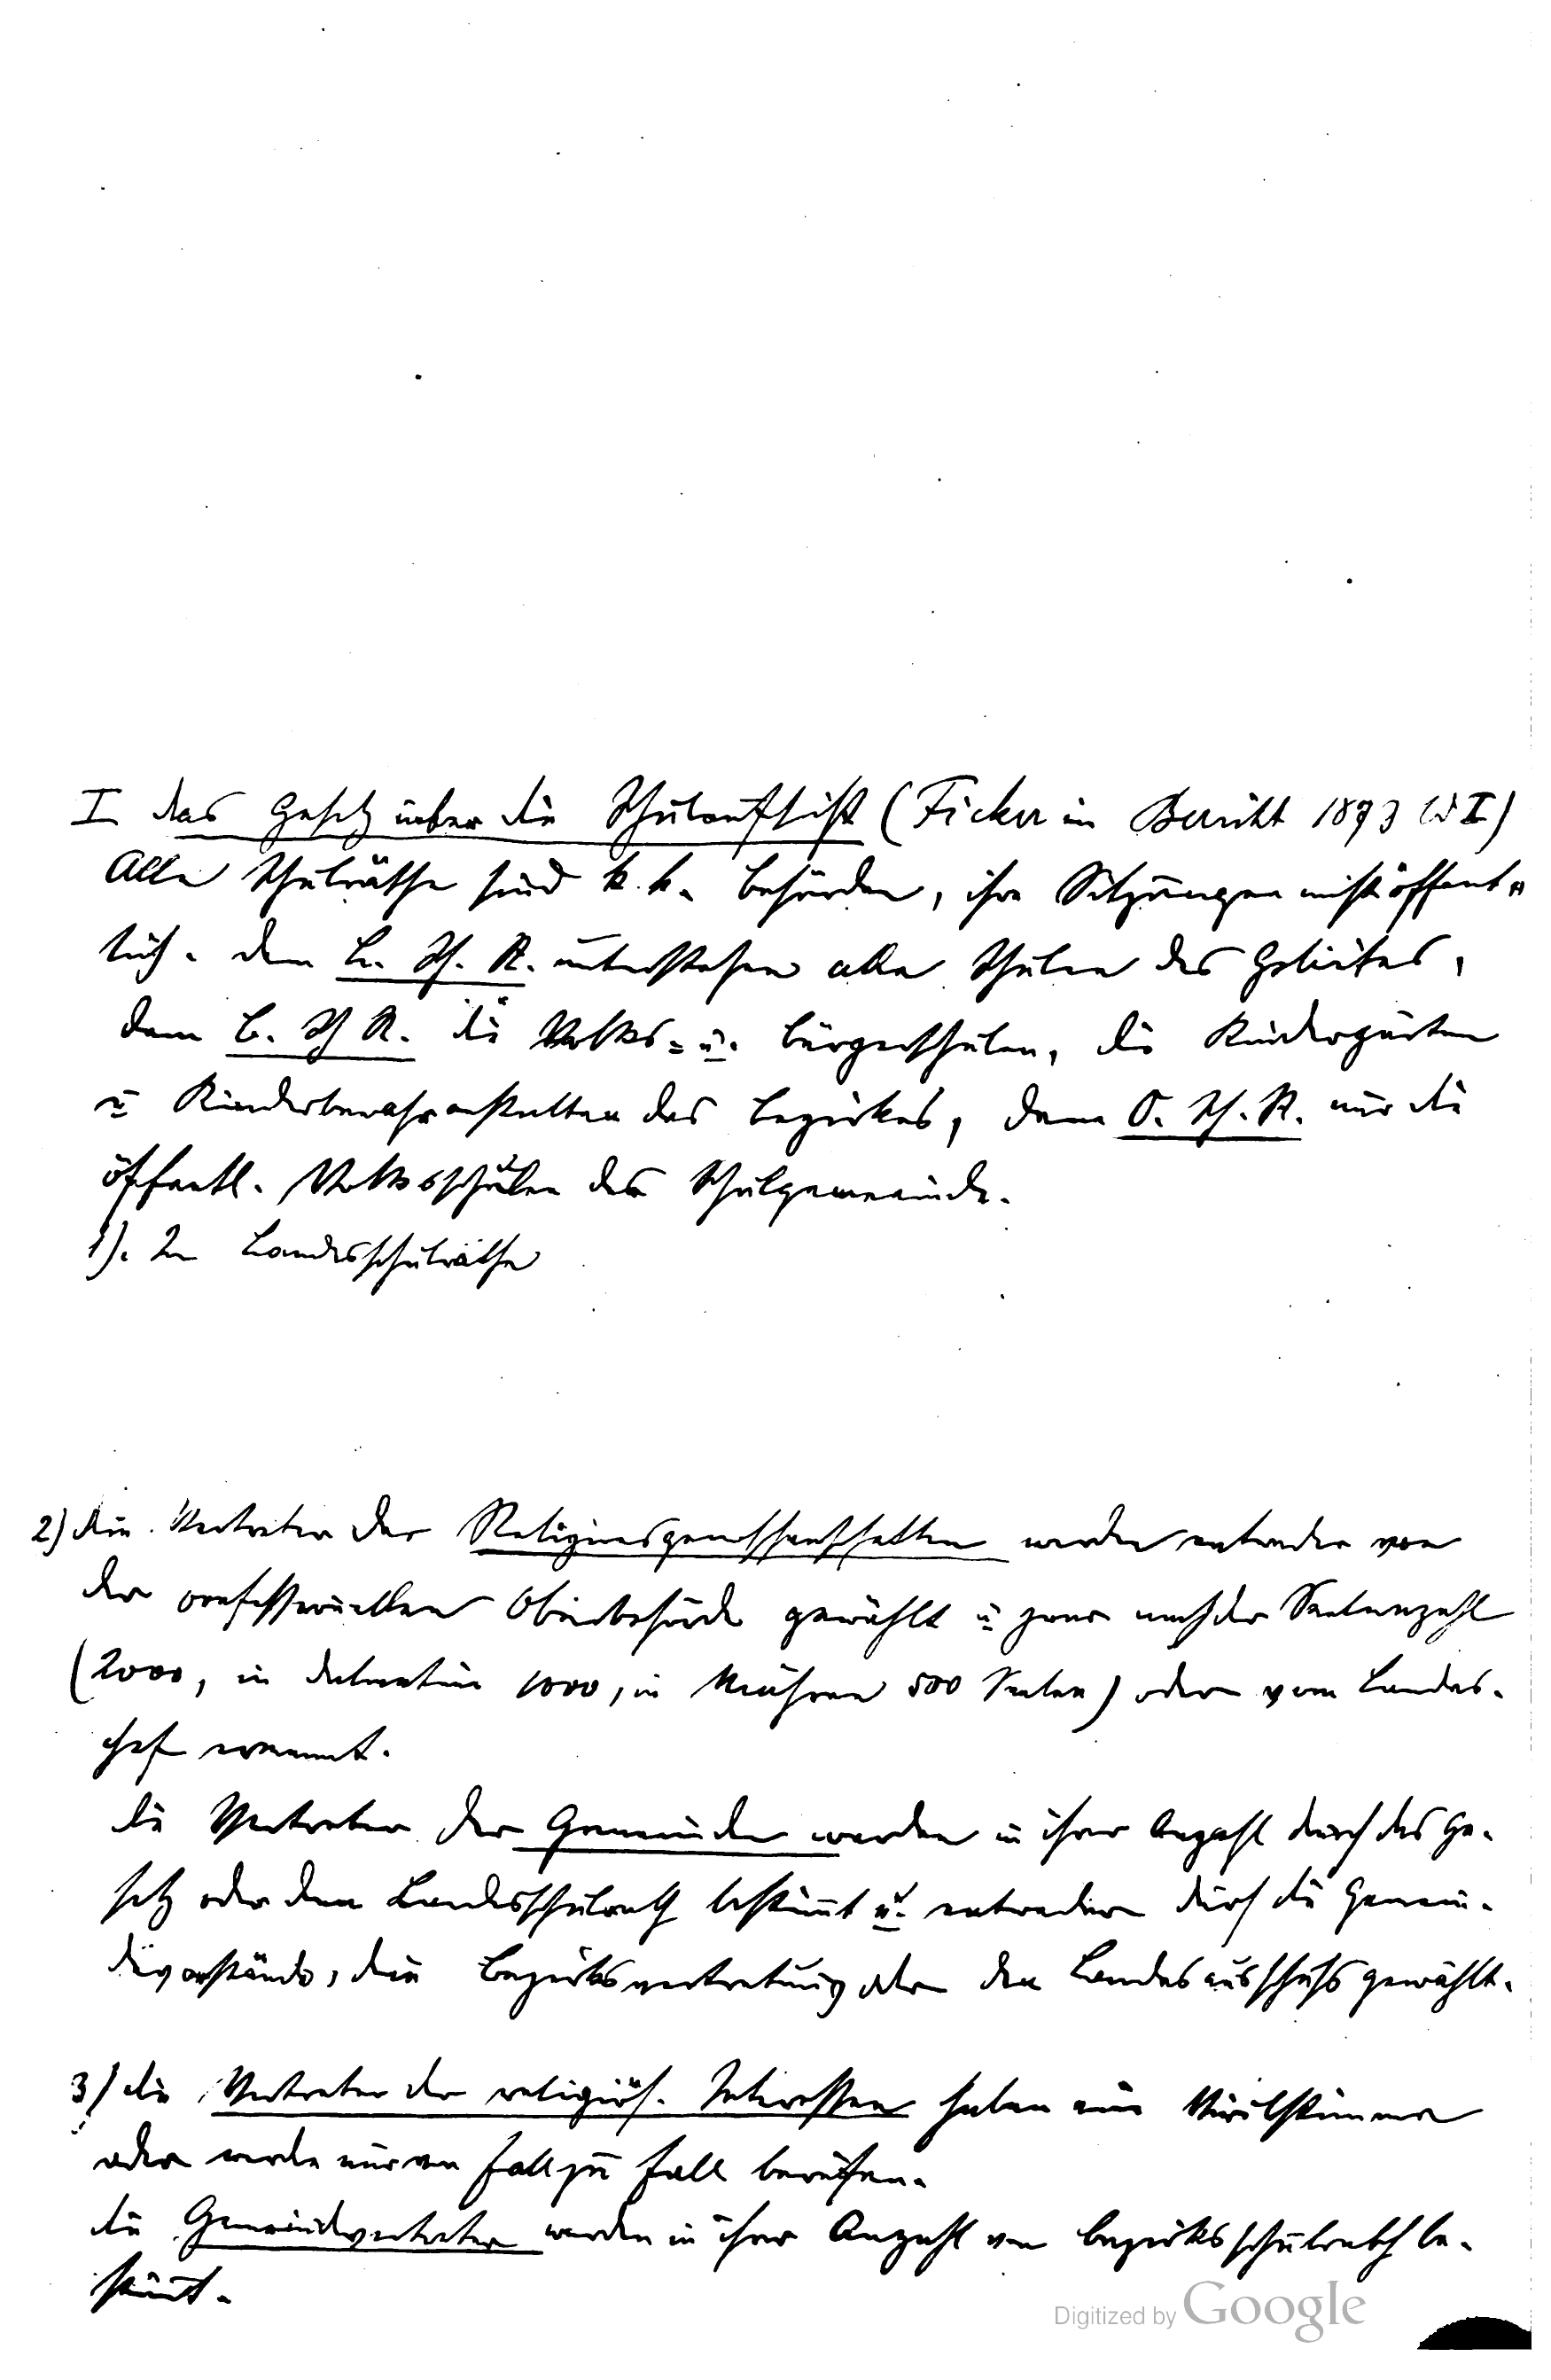 I das Gesetz über die Schulaufsicht (Ficker in Bericht 1873 Bd I)
Alle Schulräthe sind k. k. Behörden, ihre Sitzungen nicht öffent=
lich. Dem L. Sch. R. unterstehen alle Schulen des Gebietes,
dem B. Sch R. die Volks= u. Bürgerschulen, die Kindergärten
u Kinderbewahranstalten des Bezirkes, dem O. Sch. R. nur die
öffentl. Volksschulen der Schulgemeinde.
1). Landesschulräthe
2) die Vertreter der Religionsgenossenschaften werden entweder von
der confessionellen Oberbehörde gewählt u zwar nach der Seelenzahl
(2000, in Dalmatien 1000, in Mähren 500 Seelen) oder vom Landes-
chef ernannt.
die Vertreter der Gemeinden werden in ihrer Anzahl durch das Ge-
setz oder den Landesschulrath bestimmt u. entweder durch die Gemein-
devorstände, die Bezirksvertretung oder den Landesausschuß gewählt.
3) die Vertreter der religiös. Interessen haben eine Virilstimme
oder werden nur von Fall zu Fall berufen.
die Gemeindevertreter werden in ihrer Anzahl vom Bezirksschulrath be-
stimmt.
Digitized by Google